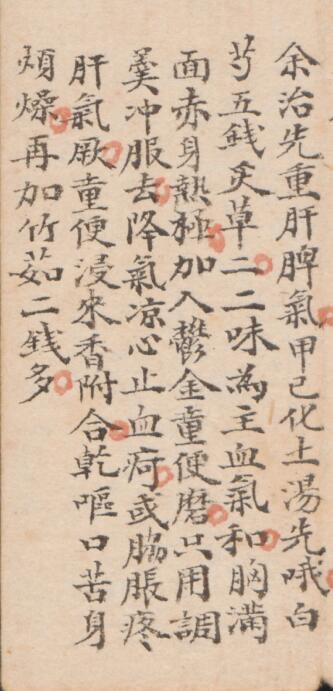 余治先重肝脾氣甲己化土湯先哦白
芍五錢炙草二二味為主血氣和胸滿
面赤身熱極加入鬱金童便磨只用調
羹冲服去降氣凉心止血疴或脇脹疼
肝氣厥童便浸來香附合乾嘔口苦身
煩燥再加竹茹二錢多